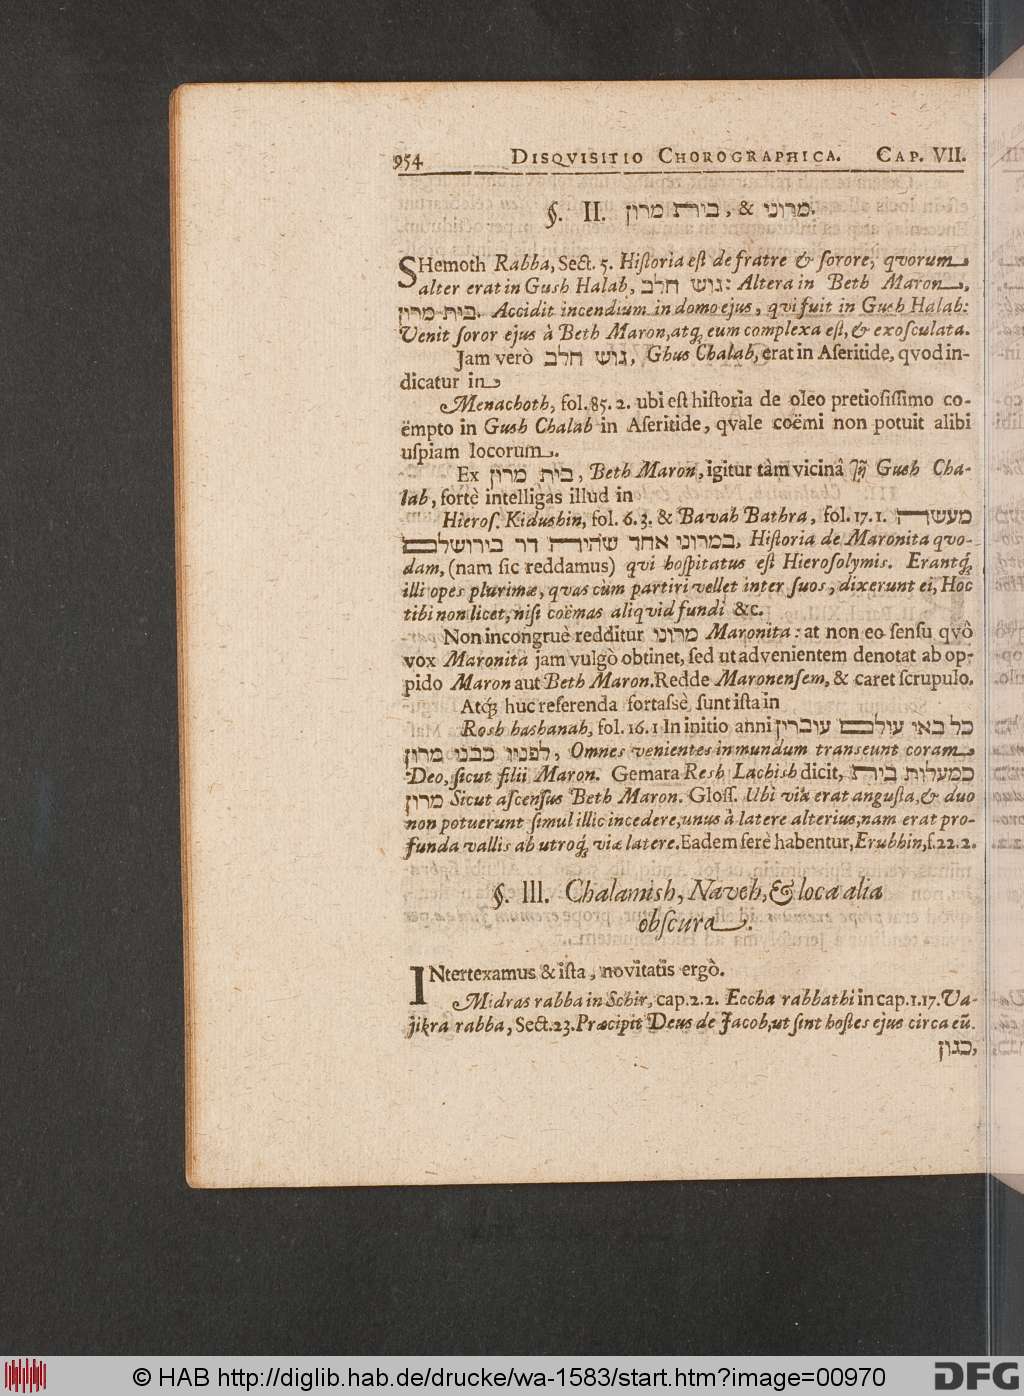 954 DISQVISITIO CHOROGRAPHICA. CAP. VII.
§. II. בית מרון, & מרוני.
SHemoth Rabba, Sect. 5. Historia est de fratre & sorore, qvorum
alter erat in Gush Halab, גוש חלב: Altera in Beth Maron,
בית מרון. Accidit incendium in domo ejus, qvi fuit in Gush Halab:
Venit soror ejus à Beth Maron, atq; eum complexa est, & exosculata.
Jam verò גוש חלב, Ghus Chalab, erat in Aseritide, qvod in-
dicatur in
Menachoth, fol. 85. 2. ubi est historia de oleo pretiosissimo co-
ëmpto in Gush Chalab in Aseritide, qvale coëmi non potuit alibi
uspiam locorum.
Ex בית מרון, Beth Maron, igitur tàm vicinâ Gush Cha-
lab, fortè intelligas illud in
Hieros. Kidushin, fol. 6. 3. & Bavah Bathra, fol. 17. 1. מעשה
במרוני אחד שהיה דר בירושלם, Historia de Maronita qvo-
dam, (nam sic reddamus) qvi hospitatus est Hierosolymis. Erantq;
illi opes plurimæ, qvas cùm partiri vellet inter suos, dixerunt ei, Hoc
tibi non licet, nisi coëmas aliqvid fundi &c.
Non incongruè redditur מרוני Maronita: at non eo sensu qvô
vox Maronita jam vulgò obtinet, sed ut advenientem denotat ab op-
pido Maron aut Beth Maron. Redde Maronensem, & caret scrupulo.
Atq; huc referenda fortassè sunt ista in
Rosh hashanah, fol. 16. 1 In initio anni כל באי עולם עוברין
לפניו כבני מרון, Omnes venientes in mundum transeunt coram
Deo, sicut filii Maron. Gemara Resh Lachish dicit, כמעלות בית
מרון Sicut ascensus Beth Maron. Gloss. Ubi via erat angusta, & duo
non potuerunt simul illic incedere, unus à latere alterius, nam erat pro-
funda vallis ab utroq; viæ latere. Eadem ferè habentur, Erubhin, f. 22. 2.
§. III. Chalamish, Naveh, & loca alia
obscura.
INtertexamus & ista, novitatis ergò.
Midras rabba in Schir, cap. 2. 2. Eccha rabbathi in cap. 1. 17. Va-
jikra rabba, Sect. 23. Præcipit Deus de Jacob, ut sint hostes ejus circa eū.
כגון,
© HAB http://diglib.hab.de/drucke/wa-1583/start.htm?image=00970
DFG